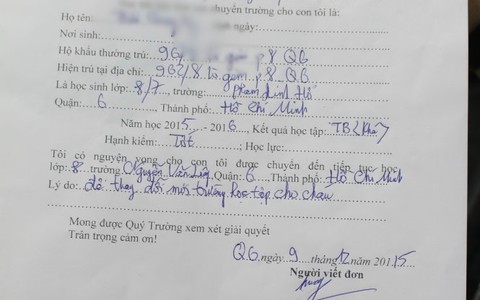 chuyển trường cho con tôi là:
Họ tên: ngày:
Nơi sinh:
Hộ khẩu thường trú: 96/ tô gum p.8 Q6
Hiện trú tại địa chỉ: 962/8 lò gốm p.8 Q6
Là học sinh lớp: 8/7, trường: Phạm Đình Hổ
Quận: 6, Thành phố: Hồ Chí Minh
Năm học 2015 - 2016, Kết quả học tập: TB (khá)
Hạnh kiểm: Tốt ; Học lực:
Tôi có nguyện vọng cho con tôi được chuyển đến tiếp tục học
lớp: 8 trường Nguyễn Văn Quận: 6 Thành phố: Hồ Chí Minh
Lý do: thay đổi môi trường học tập cho cháu
Mong được Quý Trường xem xét giải quyết
Trân trọng cảm ơn!
Q6, ngày 9 tháng 12 năm 2015
Người viết đơn